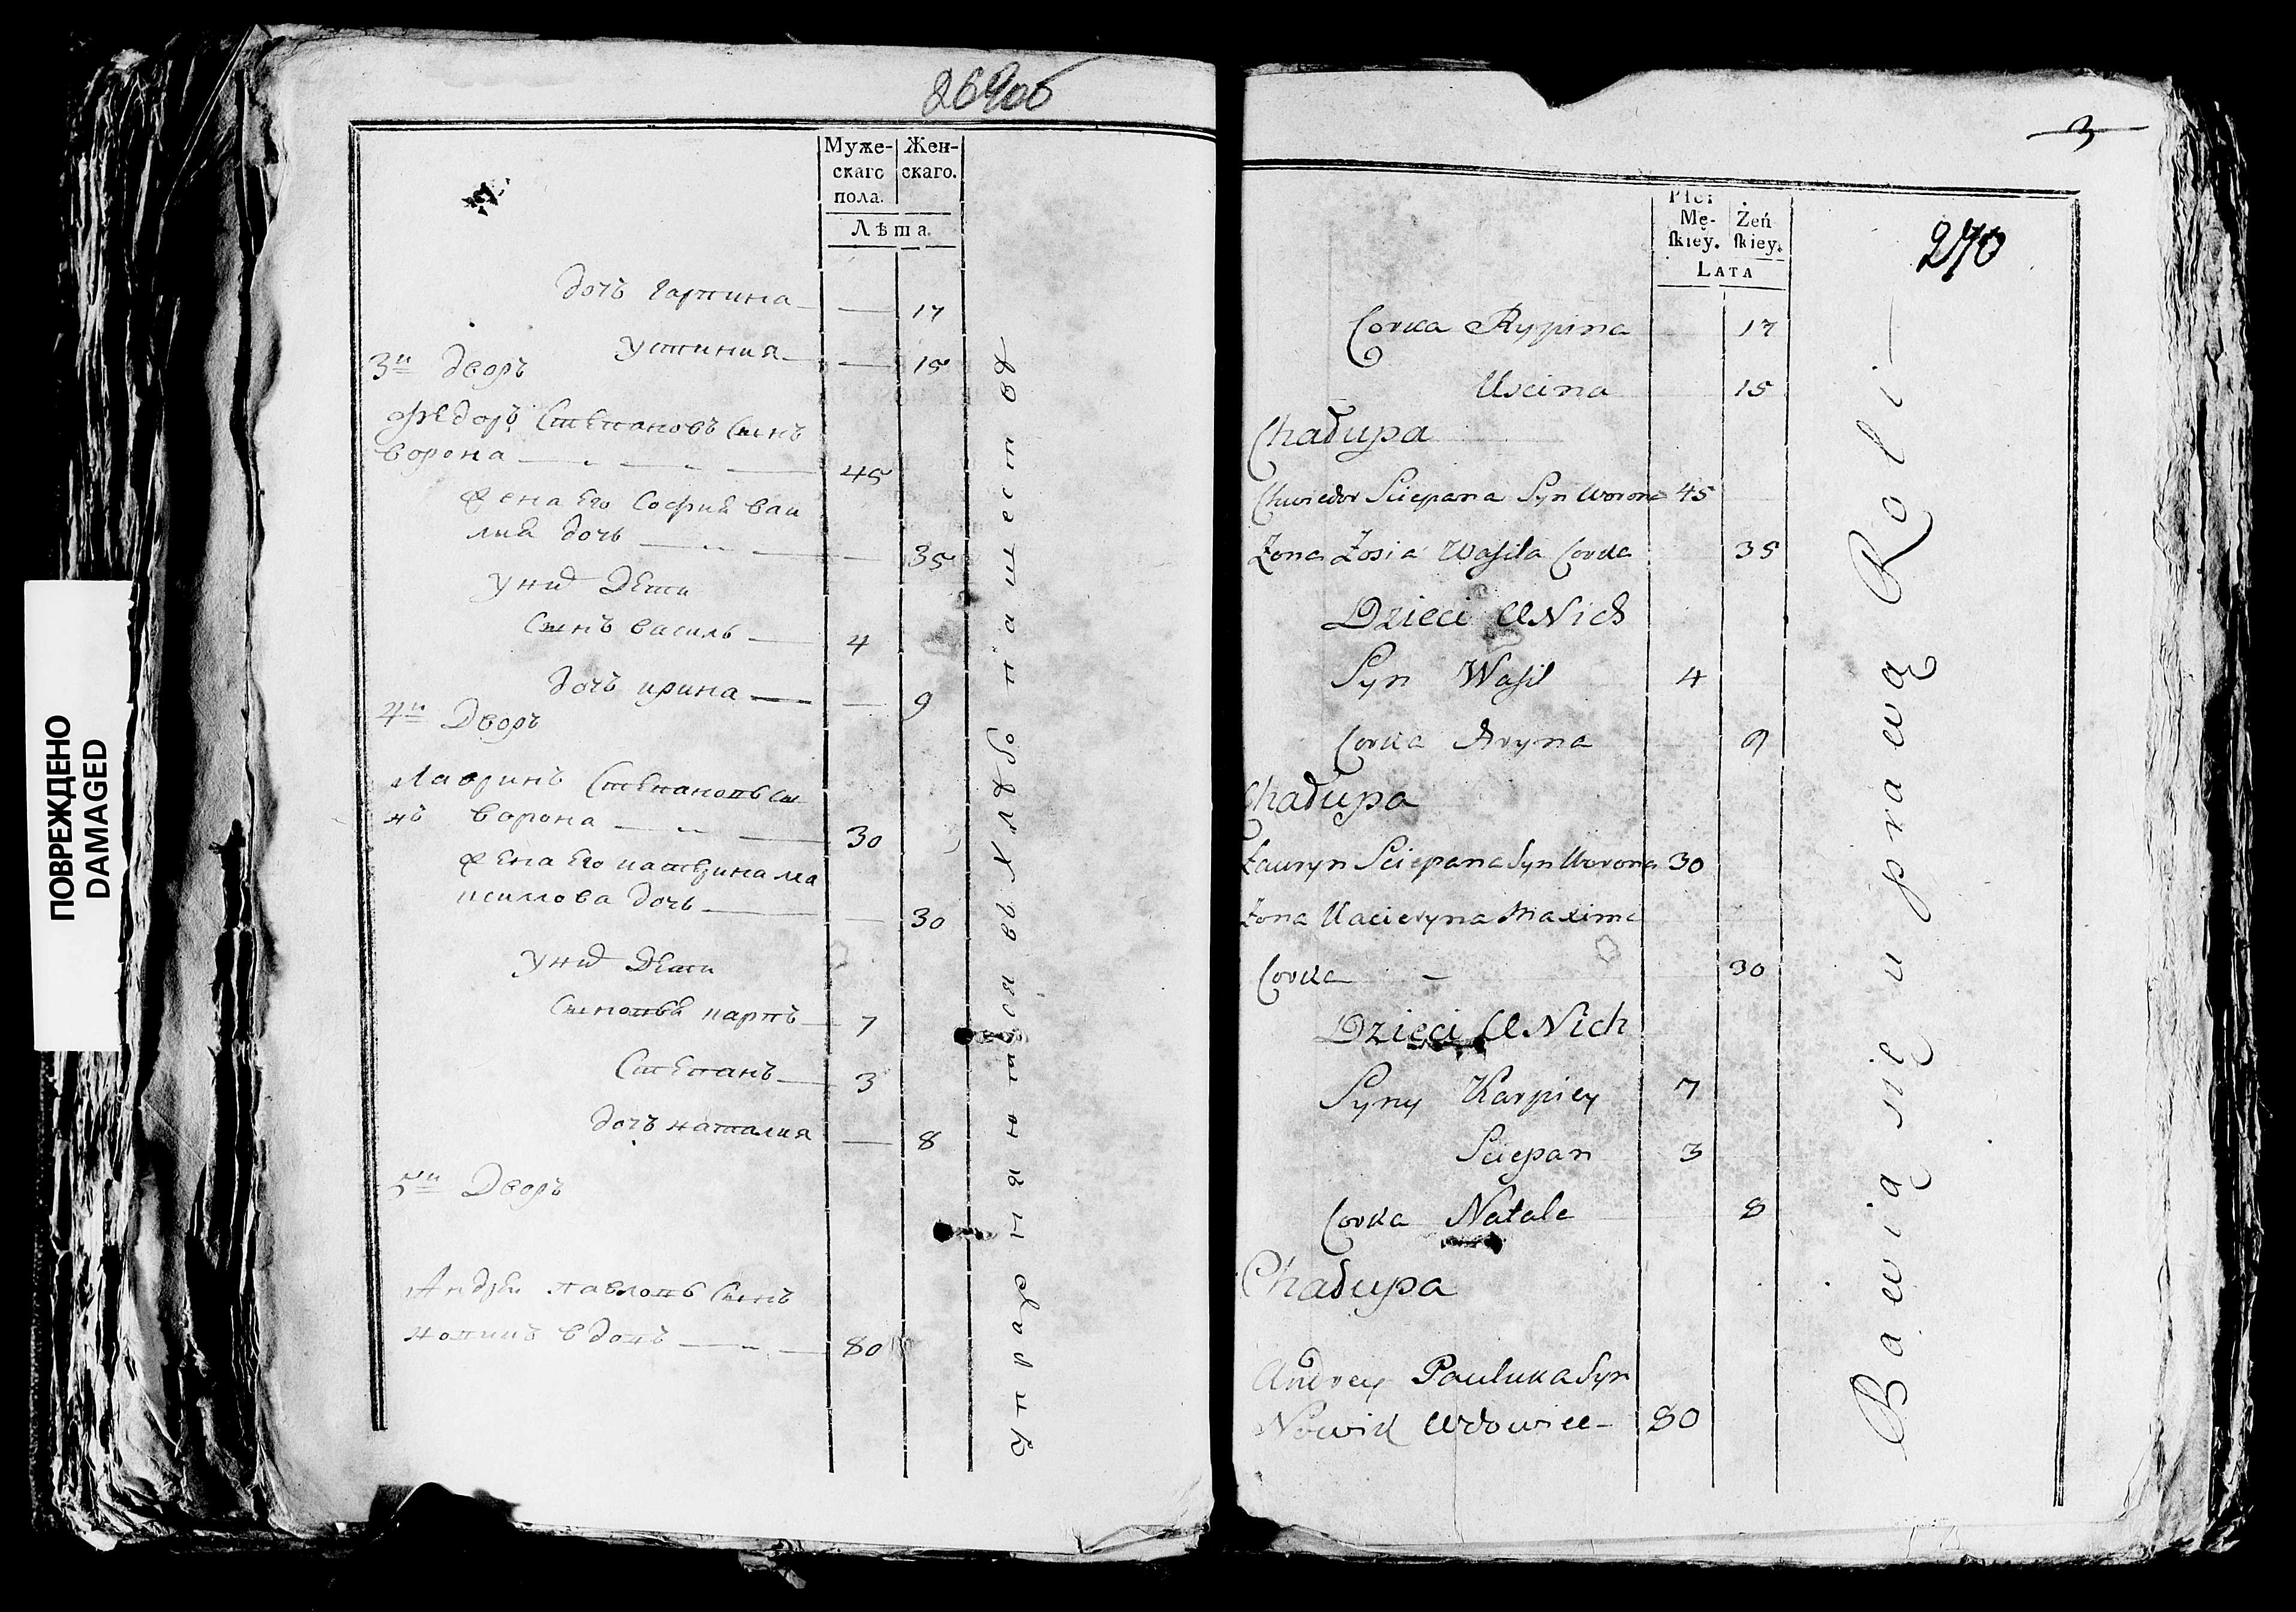 ПОВРЕЖДЕНО
DAMAGED
269об
Муже-
скаго
пола.
Жен-
скаго.
Лѣта.
дочъ 17
Устиния 15
3й дворъ
Федоръ Степановъ Сынъ
ворона 45
жена Его София Васи
лия дочь 35
у них Дети
Сынъ василь 4
дочъ ирина 9
4й Дворъ
Лавринъ Степановъ Сы
нъ ворона 30
жена Его катерина ма
ксимова дочь 30
у них Дети
Сыновья карпъ 7
Степанъ 3
дочъ наталия 8
5й Дворъ
Андрей павловъ Сынъ
новикъ вдовъ 80
упражняются въ хлѣбопашествѣ
3
270
Płci
Mę-
skiey.
Żeń
skiey.
LATA
Corka Rypina 17
Uscina 15
Chałupa
Chwiedor Sciepana Syn Worona 45
Żona Zosia Wasila Corka 35
Dzieci U Nich
Syn Wasil 4
Corka Aryna 9
Chałupa
Łauryn Sciepana Syn Worona 30
Żona Kacieryna Maxima
Corka - 30
Dzieci U Nich
Syny Karpiey 7
Sciepan 3
Corka Natale 8
Chałupa
Andrey Pauluka Syn
Nowik Wdowiec 80
Bawią się uprawą Roli